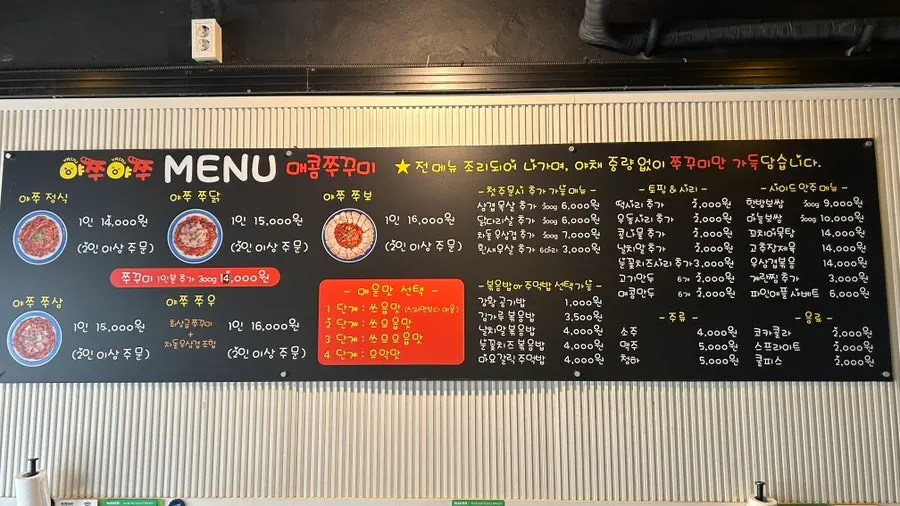 야쭈야쭈 MENU 매콤쭈꾸미
★ 전메뉴 조리되어 나가며, 야채 중량없이 쭈꾸미만 가득담습니다.
야쭈 정식
1인 14,000원
(2인 이상 주문)
야쭈 쭈닭
1인 15,000원
(2인 이상 주문)
야쭈 쭈보
1인 16,000원
(2인 이상 주문)
쭈꾸미 1인분 추가 300g 14,000원
야쭈 쭈삼
1인 15,000원
(2인 이상 주문)
야쭈 쭈우
최상급쭈꾸미
+
차돌우삼겹조망
1인 16,000원
(2인 이상 주문)
- 매운맛 선택 -
1 단계 : 쓰읍맛 (신라면보다 매움)
2 단계 : 쓰요읍맛
3 단계 : 쓰으요읍맛
4 단계 : 으악맛
- 첫주문시 추가 가능메뉴 -
삼겹목살 추가 200g 6,000원
닭다리살 추가 200g 6,000원
차돌우삼겹 추가 200g 7,000원
흰새우살 추가 6마리 3,000원
- 볶음밥or주먹밥 선택가능 -
강황 공기밥 1,000원
김가루 볶음밥 3,500원
날치알 볶음밥 4,000원
눈꽃치즈 볶음밥 4,000원
마요갈릭 주먹밥 4,000원
- 토핑&사리 -
떡사리 추가 2,000원
우동사리 추가 2,000원
콩나물 추가 2,000원
날치알 추가 2,000원
눈꽃치즈사리 추가 3,000원
고기만두 6개 2,000원
매콤만두 6개 2,000원
- 사이드안주메뉴 -
한방보쌈 200g 9,000원
마늘보쌈 200g 10,000원
꼬치어묵탕 14,000원
고추장제육 14,000원
우삼겹볶음 14,000원
계란찜 추가 3,000원
파인애플샤베트 6,000원
- 주류 -
소주 4,000원
맥주 5,000원
청하 5,000원
- 음료 -
코카콜라 2,000원
스프라이트 2,000원
쿨피스 2,000원